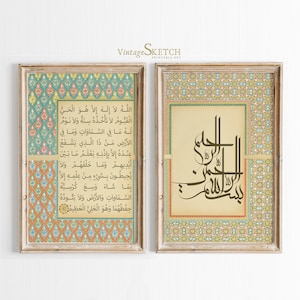 VintageSKETCH
PRINTABLE ART
اللَّهُ لَا إِلَٰهَ إِلَّا هُوَ الْحَيُّ
الْقَيُّومُ لَا تَأْخُذُهُ سِنَةٌ وَلَا نَوْمٌ
لَهُ مَا فِي السَّمَاوَاتِ وَمَا فِي
الْأَرْضِ مَنْ ذَا الَّذِي يَشْفَعُ
عِنْدَهُ إِلَّا بِإِذْنِهِ يَعْلَمُ مَا بَيْنَ
أَيْدِيهِمْ وَمَا خَلْفَهُمْ وَلَا
يُحِيطُونَ بِشَيْءٍ مِنْ عِلْمِهِ إِلَّا
بِمَا شَاءَ وَسِعَ كُرْسِيُّهُ
السَّمَاوَاتِ وَالْأَرْضَ وَلَا يَئُودُهُ
حِفْظُهُمَا وَهُوَ الْعَلِيُّ الْعَظِيمُ
بسم الله الرحمن الرحيم